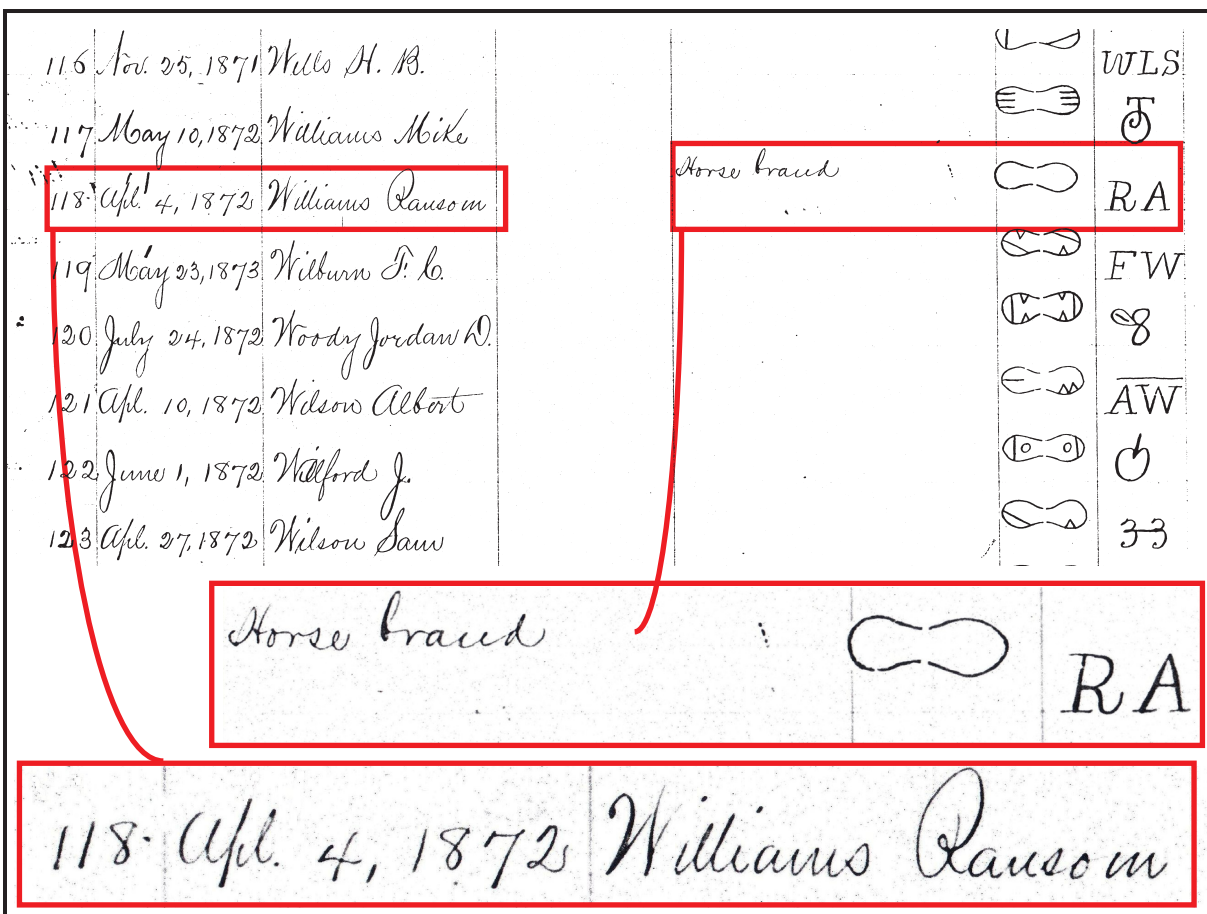 116 Nov. 25, 1871 Wells H. B. WLS
117 May 10, 1872 Williams Mike
118 Apl. 4, 1872 Williams Ransom Horse brand RA
119 May 23, 1873 Wilburn F. C. FW
120 July 24, 1872 Woody Jordan D. 8
121 Apl. 10, 1872 Wilson Albert AW
122 June 1, 1872 Wilford J.
123 Apl. 27, 1872 Wilson Sam 33
Horse brand RA
118. Apl. 4, 1872 Williams Ransom